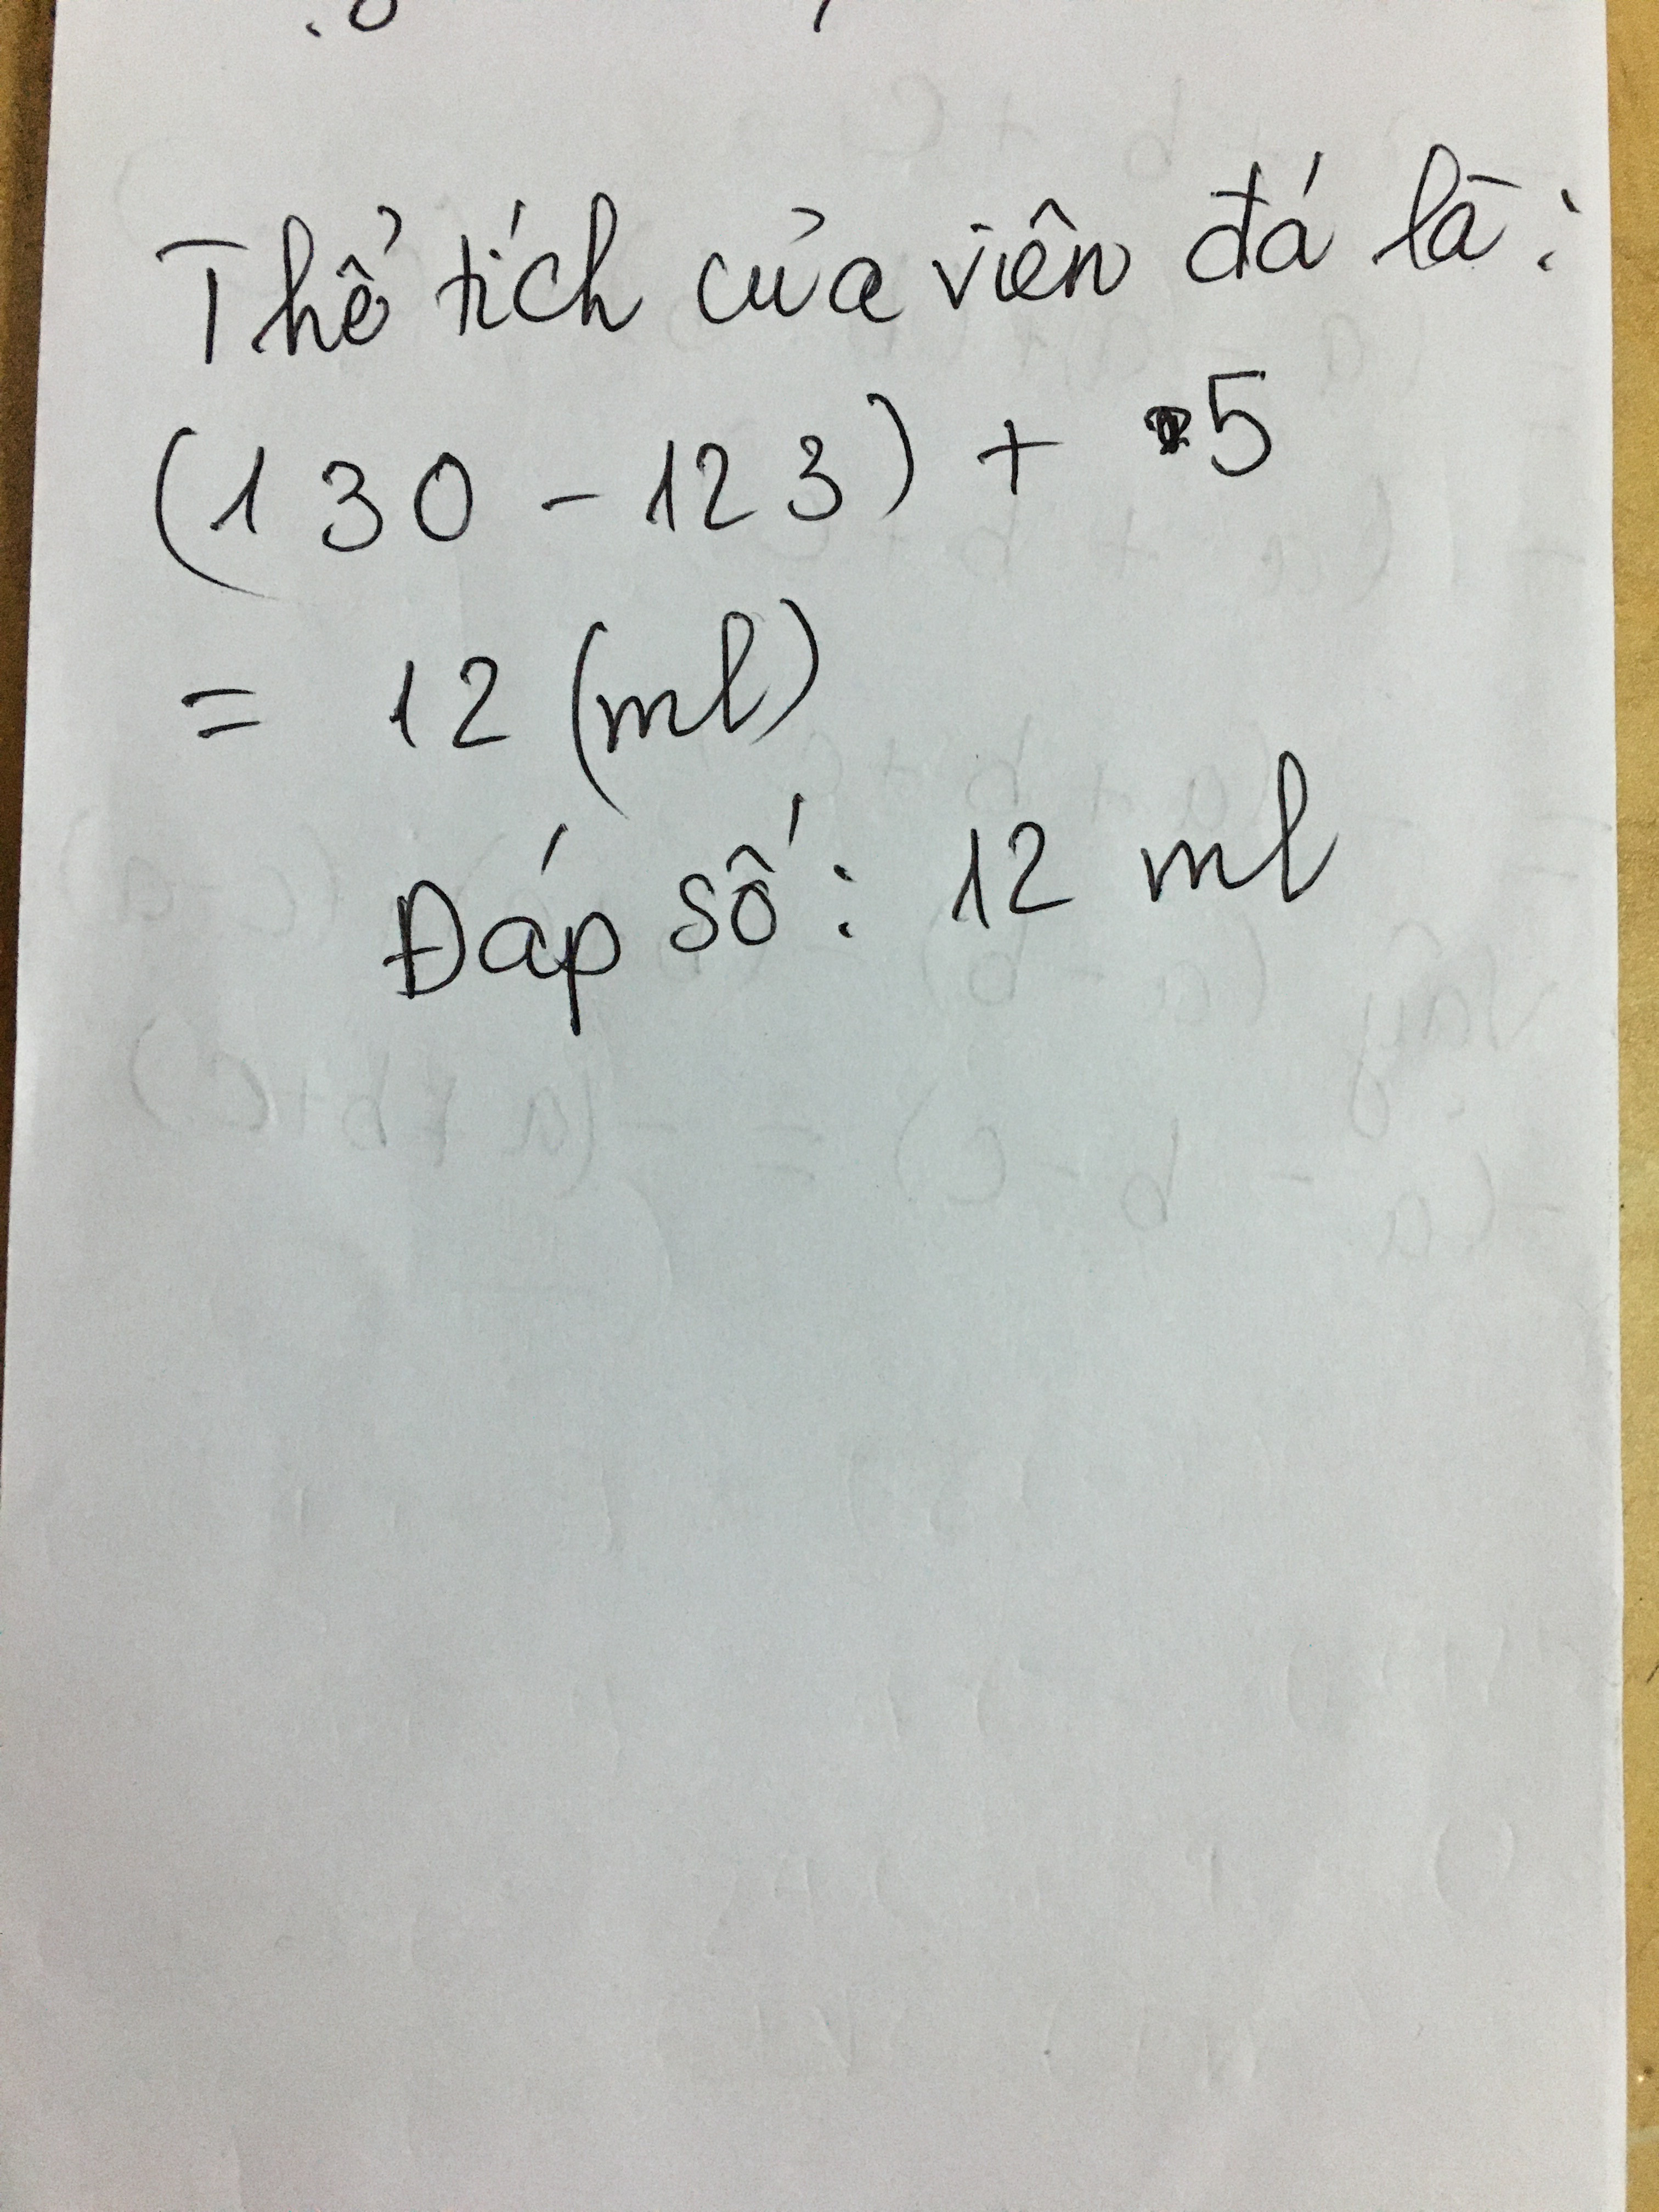 Thể tích của viên đá là:
(130 - 123) + 5
= 12 (ml)
Đáp số: 12 ml